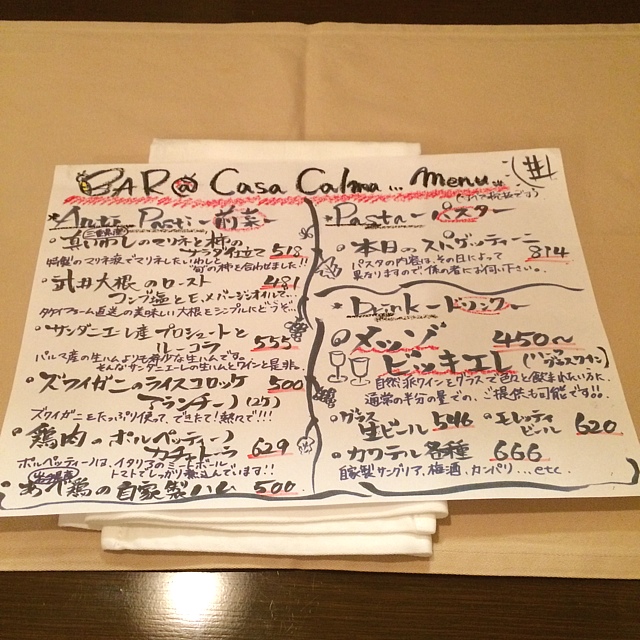 BAR@ Casa Calma... Menu
Anti Pasti - 前菜 -
三重県産
真いわしのマリネと柿の
サラダ仕立て 518
特製のマリネ液でマリネしたいわしと
旬の柿を合わせました!!
武井大根のロースト 481
コンブ塩とE.Vバージンオイルで...
タケイファーム直送の美味しい大根をシンプルにどうぞ...
サンダニエーレ産プロシュートと
ルーコラ 555
パルマ産の生ハムよりも希少な生ハムです。
そんなサンダニエーレの生ハムとワインと是非..
ズワイガニのライスコロッケ 500
アランチーノ(2コ)
ズワイガニをたっぷり使って、できたて!熱々で!!!
鶏肉のポルペッティーノ
カチャトーラ 629
ポルペッティーノは、イタリアのミートボール
トマトでしっかり煮込んでいます!!
鶏の自家製ハム 500
Pasta - パスタ -
本日のスパゲッティーニ 814
パスタの内容は、その日によって
異なりますので係の者にお伺い下さい。
Drink - ドリンク -
メッゾ 450〜
ビッキエレ (ハーフグラスワイン)
自然派ワインをグラスで色々と飲まれたい方に
通常の半分の量での、ご提供も可能です!!
グラス生ビール 546
モレッティビール 620
カクテル各種 666
自家製サングリア、梅酒、カンパリ...etc.